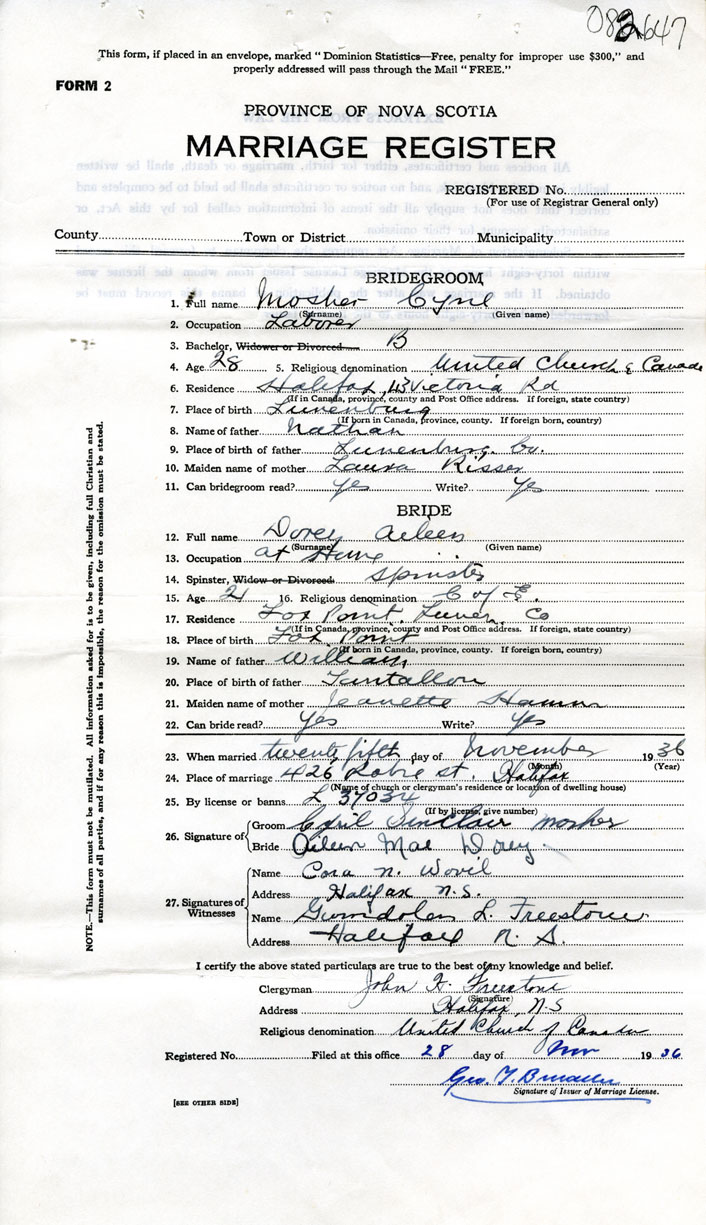 082647
This form, if placed in an envelope, marked "Dominion Statistics—Free, penalty for improper use $300," and
properly addressed will pass through the Mail "FREE."
FORM 2
PROVINCE OF NOVA SCOTIA
MARRIAGE REGISTER
REGISTERED No.
(For use of Registrar General only)
County Town or District Municipality
BRIDEGROOM
1. Full name Mosher
(Surname) (Given name)
2. Occupation Laborer
3. Bachelor, Widower or Divorced B
4. Age 28 5. Religious denomination United Church of Canada
6. Residence Halifax, 13 Victoria Rd
(If in Canada, province, county and Post Office address. If foreign, state country)
7. Place of birth Lunenburg
(If born in Canada, province, county. If foreign born, country)
8. Name of father Nathan
9. Place of birth of father Lunenburg Co.
10. Maiden name of mother Laura Risser
11. Can bridegroom read? yes Write? yes
BRIDE
12. Full name Dorey Aileen
(Surname) (Given name)
13. Occupation at Home
14. Spinster, Widow or Divorced Spinster
15. Age 21 16. Religious denomination C of E.
17. Residence Fox Point, Lunen. Co
(If in Canada, province, county and Post Office address. If foreign, state country)
18. Place of birth Fox Point
(If born in Canada, province, county. If foreign born, country)
19. Name of father William
20. Place of birth of father Tantallon
21. Maiden name of mother Jeanette Hamm
22. Can bride read? Yes Write? Yes
23. When married twenty fifth day of November 1936
(Month) (Year)
24. Place of marriage 426 Robie st. Halifax
(Name of church or clergyman's residence or location of dwelling house)
25. By license or banns L 37034
(If by license, give number)
26. Signature of Groom Cyril Sinclair Mosher
Bride Aileen Mae Dorey
27. Signatures of Witnesses Name Cora N.
Address Halifax N.S.
Name Gwendolen L. Freestone
Address Halifax N.S.
I certify the above stated particulars are true to the best of my knowledge and belief.
Clergyman John H. Freestone
(Signature)
Address Halifax, N.S
Religious denomination United Church of Canada
Registered No. Filed at this office 28 day of Nov 1936
Geo. T.
Signature of Issuer of Marriage License.
[SEE OTHER SIDE]
NOTE.—This form must not be mutilated. All information asked for is to be given, including full Christian and
surnames of all parties, and if for any reason this is impossible, the reason for the omission must be stated.